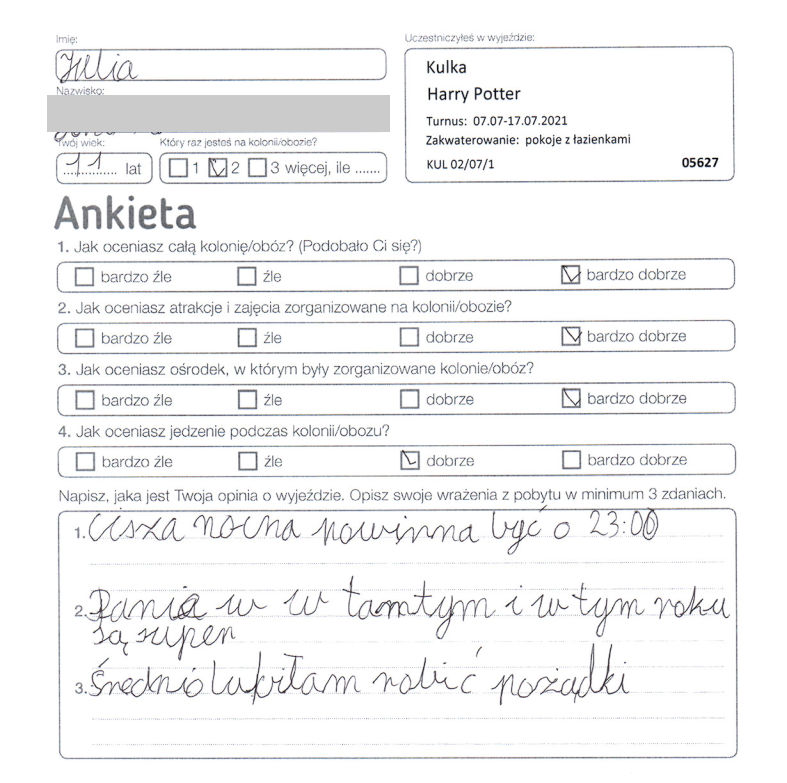 Imię:
Julia
Uczestniczyłeś w wyjeździe:
Kulka
Harry Potter
Turnus: 07.07-17.07.2021
Zakwaterowanie: pokoje z łazienkami
KUL 02/07/1 05627
Nazwisko:
Twój wiek:
11 lat
Który raz jesteś na kolonii/obozie?
1 2 3 więcej, ile .......
Ankieta
1. Jak oceniasz całą kolonię/obóz? (Podobało Ci się?)
bardzo źle źle dobrze bardzo dobrze
2. Jak oceniasz atrakcje i zajęcia zorganizowane na kolonii/obozie?
bardzo źle źle dobrze bardzo dobrze
3. Jak oceniasz ośrodek, w którym były zorganizowane kolonie/obóz?
bardzo źle źle dobrze bardzo dobrze
4. Jak oceniasz jedzenie podczas kolonii/obozu?
bardzo źle źle dobrze bardzo dobrze
Napisz, jaka jest Twoja opinia o wyjeździe. Opisz swoje wrażenia z pobytu w minimum 3 zdaniach.
1. Cisza nocna powinna być o 23:00
2. Pania w w tamtym i w tym roku
są super
3. Średnio lubiłam robić pożądki